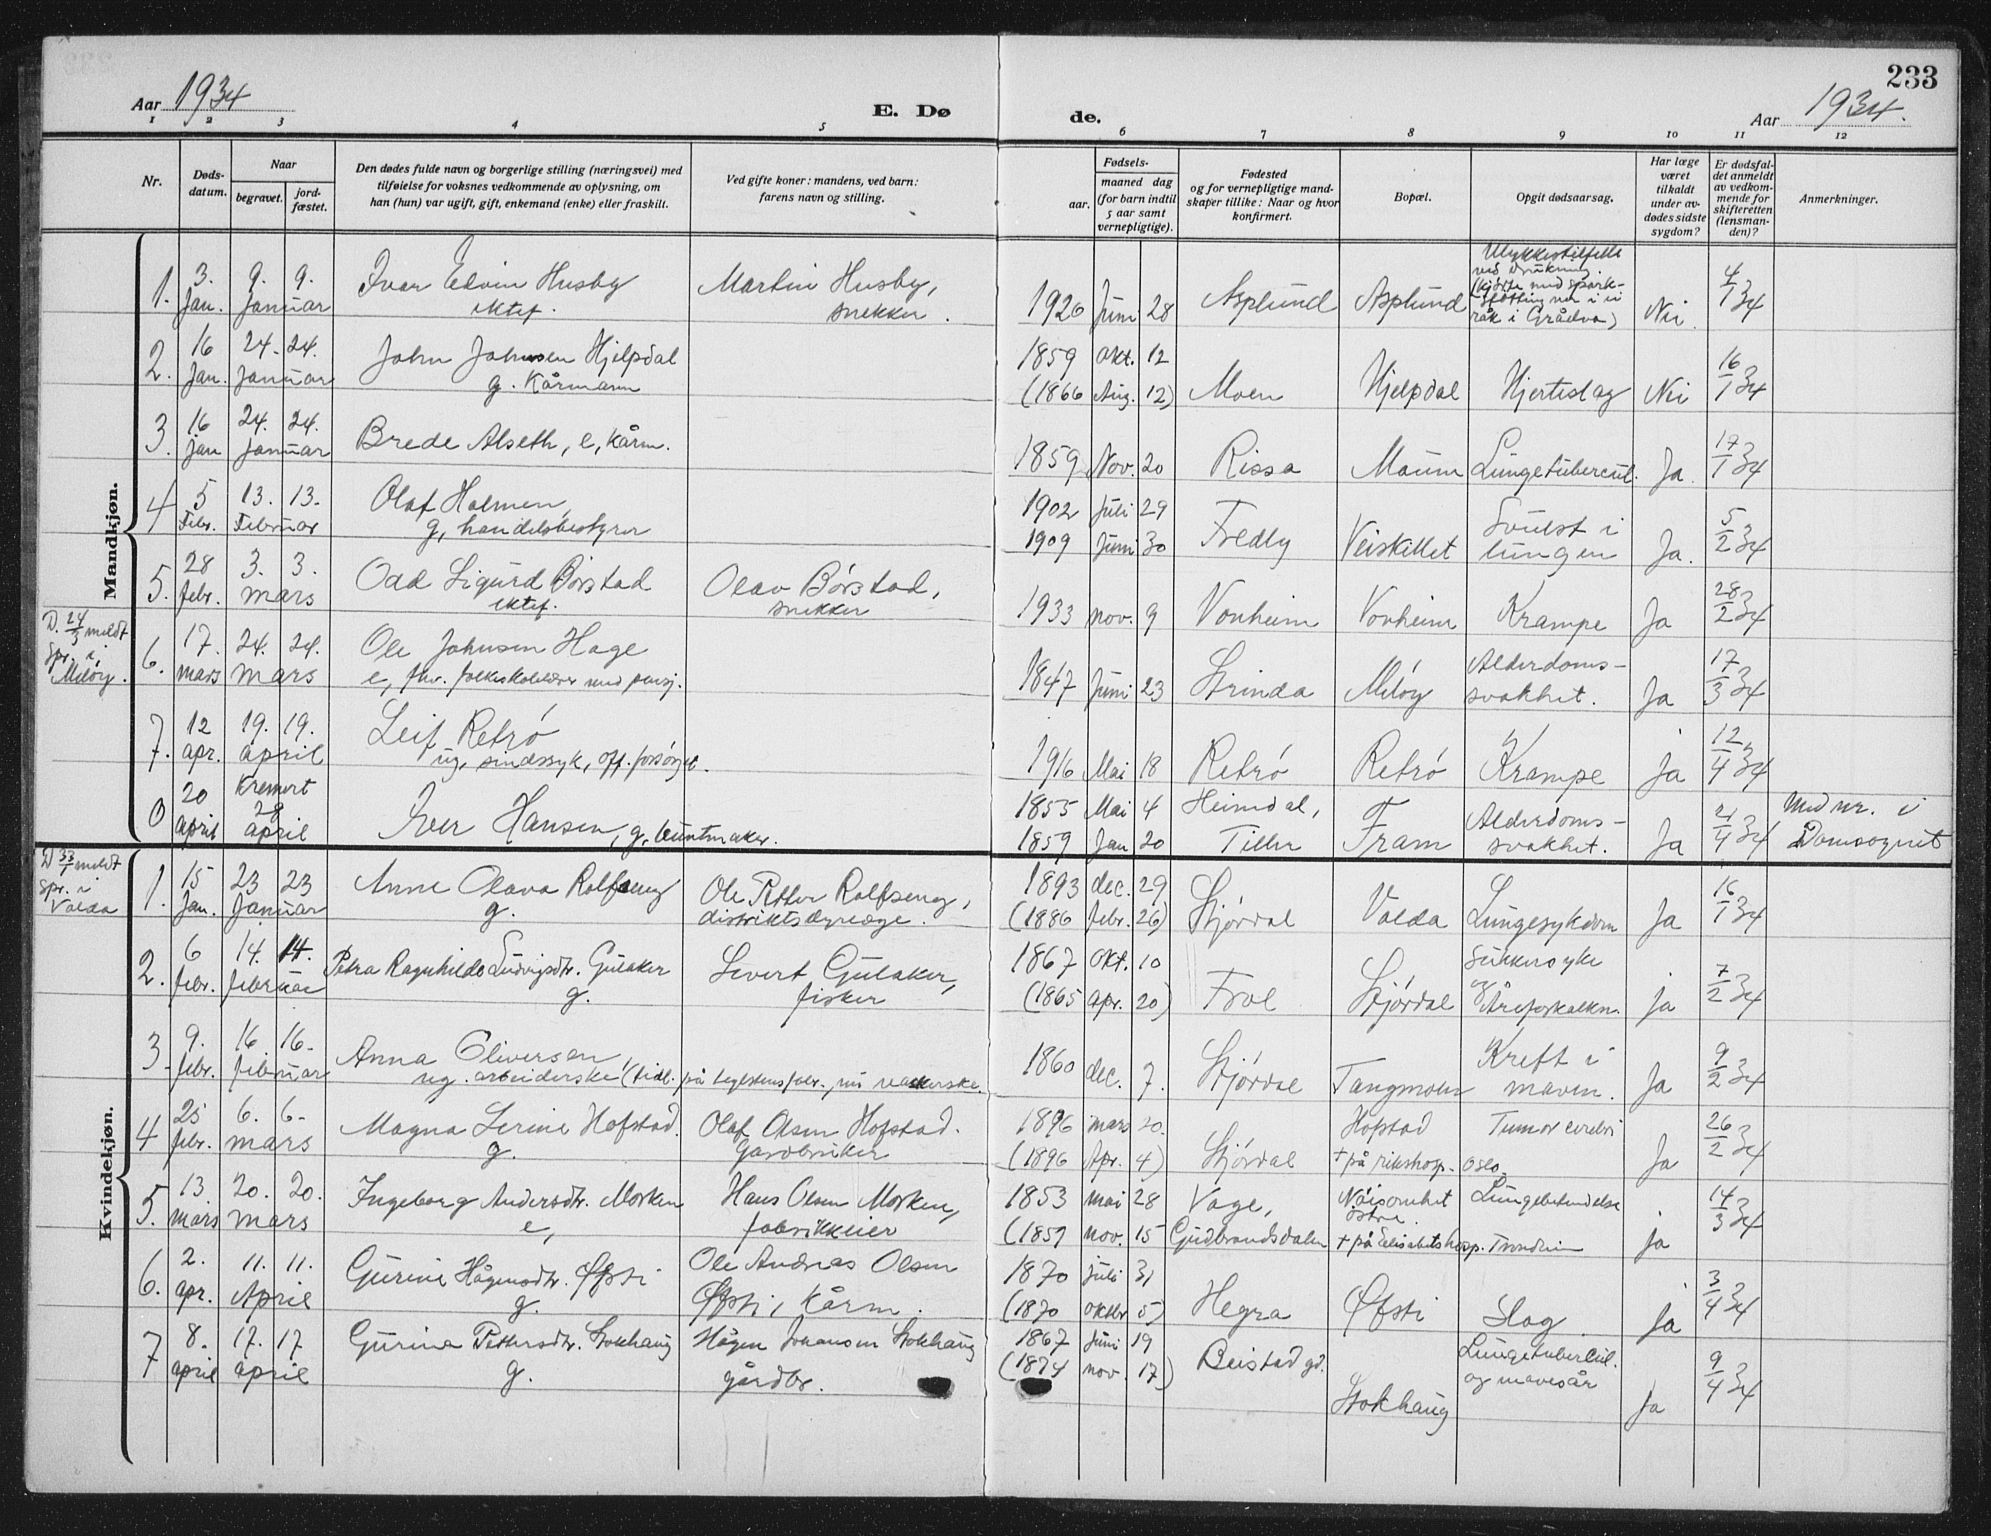 233
Aar 1934
E. Dø
de.
Aar 1934.
1 2 3 4 5 6 7 8 9 10 11 12
Nr.
Døds-
datum.
Naar
begravet.
jord-
fæstet.
Den dødes fulde navn og borgerlige stilling (næringsvei) med
tilføielse for voksnes vedkommende av oplysning, om
han (hun) var ugift, gift, enkemand (enke) eller fraskilt.
Ved gifte koner: mandens, ved barn:
farens navn og stilling.
Fødsels-
aar.
maaned dag
(for barn indtil
5 aar samt
vernepligtige).
Fødested
og for vernepligtige mand-
skaper tillike: Naar og hvor
konfirmert.
Bopæl.
Opgit dødsaarsag.
Har læge
været
tilkaldt
under av-
dødes sidste
sygdom?
Er dødsfal-
det anmeldt
av vedkom-
mende for
skifteretten
(lensman-
den)?
Anmerkninger.
Mandkjøn.
1. 3. Jan. 9. 9. Januar Ivar Edvin Husby
ektef.
Martin Husby,
snekker.
1926 Juni 28 Asplund Asplund
Ulykkestilfelle
ved drukning.
(kjørte med spark-
støtting ner i ei
råk i Gråelva)
Nei. 4/1 34
2. 16 Jan. 24. 24. Januar John Johnsen Hjelpdal
g. Kårmann
1859 okt. 12
(1866 Aug. 12) Moen Hjelpdal Hjerteslag Nei 16/1 34
3. 16 Jan 24. 24. Januar Brede Alseth, e, kårm.
1859 Nov. 20 Rissa Maum Lungetubercul. Ja. 17/1 34
4 5 Febr. 13. 13. Februar Olaf Holmen,
g, handelsbestyrer
1902 Juli 29
1909 Juni 30 Fredly Veiskillet Svulst i
lungen Ja. 5/2 34
5. 28 febr. 3. 3. mars Odd Sigurd Børstad
ektef.
Olav Børstad,
snekker
1933 nov. 9 Vonheim Vonheim Krampe Ja 28/2 34
D. 24/3 meldt
spr. i
Meløy.
6. 17. mars 24. 24. mars Ole Johnsen Hage
e, fhv. folkeskolelærer med pensj.
1847 Juni 23 Strinda Meløy Alderdoms-
svakhet. Ja 17/3 34
7. 12 apr. 19. 19. april Leif Retrø
ug, sindssyk, off. forsørget.
1916 Mai 18 Retrø Retrø Krampe ja 12/4 34
0 20 april Kremert
28
april Iver Hansen, g, buntmaker.
1855 Mai 4 Heimdal,
1859 Jan 20 Tiller Fram Alderdoms-
svakhet. Ja 21/4 34 Med nr. i
Domsognet
Kvindekjøn.
meldt
spr. i
Valda
1. 15 Jan. 23 23 Januar Anne Olava Rolfseng
g.
Ole Petter Rolfseng,
distriktsdyrlæge.
1893 dec. 29
(1886 febr. 26) Stjørdal Valda Lungesykdom Ja 16/1 34
2. 6 febr. 14. 14. februar Petra Ragnhilda Ludvigsdtr. Gulaker
g.
Severt Gulaker,
fisker
1867 okt. 10
(1865 apr. 20) Frol Stjørdal Sukkersyke
og
Åreforkalkn. ja 7/2 34
3 9. febr. 16. 16. februar Anna Oliversen
ug. arbeiderske (tidl. på teglstensfabr., nu vaskerske.
1860 dec. 7. Stjørdal Tangmoen Kreft i
maven. Ja 9/2 34
4 25 febr. 6. 6. mars Magna Serine Hofstad.
g.
Olaf Olsen Hofstad.
Gardbruker
1896 mars 20.
(1896 Apr. 4) Stjørdal Hofstad
+ på rikshosp. Oslo. Tumor cerebri Ja 26/2 34
5. 13. mars 20. 20. mars Ingeborg Andersdtr. Morken
e,
Hans Olsen Morken,
fabrikkeier
1853 mai 28 Vage,
(1857 nov. 15 Gudbrandsdalen Nøisomhet
østre.
+ på Elisabetshosp. Trondheim Lungebetendelse ja 14/3 34
6. 2. apr. 11. 11. April Gurine Hågensdtr. Øfsti
g.
Ole Andreas Olsen
Øfsti, kårm.
1870 juli 31
(1870 oktbr 5) Hegra Øfsti Slag. ja 3/4 34
7 8. april 17. 17 april Gurine Pettersdtr. Stokhaug
g.
Hågen Johansen Stokhaug
gårdbr.
1867 juni 19
(1874 nov. 17) Beistad gd. Stokhaug Lungetubercul.
og mavesår Ja 9/4 34